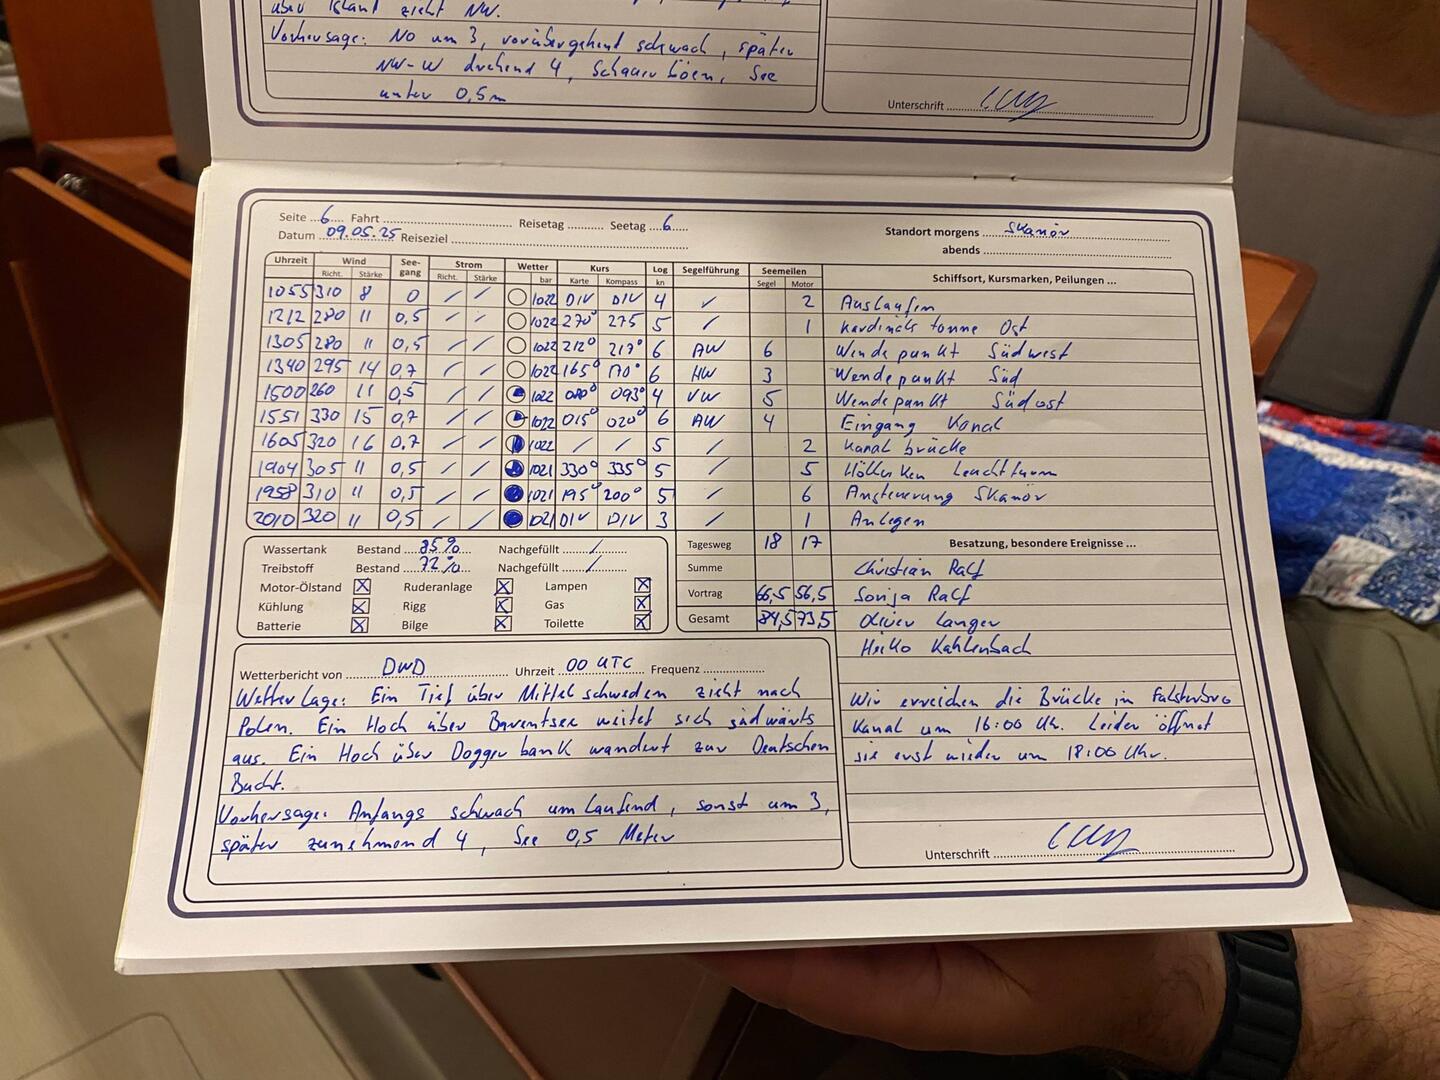 über Island zieht NW.
Vorhersage: NO um 3, vorübergehend schwach, später
NW-W drehend 4, Schauerböen, See
unter 0,5m
Unterschrift
Seite 6 Fahrt Reisetag Seetag 6
Datum 09.05.25 Reiseziel
Standort morgens Skanör
abends
Uhrzeit Wind See-gang Strom Wetter Kurs Log Segelführung Seemeilen Schiffsort, Kursmarken, Peilungen ...
Richt. Stärke Richt. Stärke bar Karte Kompass kn Segel Motor
1055 310 8 0 / / 1022 DIV DIV 4 / 2 Auslaufen
1212 280 11 0,5 / / 1022 270° 275 5 / 1 Kardinale tonne Ost
1305 280 11 0,5 / / 1022 212° 217° 6 AW 6 Wendepunkt Südwest
1340 295 14 0,7 / / 1022 165° 170° 6 HW 3 Wendepunkt Süd
1500 260 11 0,5 / / 1022 093° 4 VW 5 Wendepunkt Südost
1551 330 15 0,7 / / 1022 015° 020° 6 AW 4 Eingang Kanal
1605 320 16 0,7 / / 1022 / / 5 2 Kanal brücke
1904 305 11 0,5 / / 1021 330° 335° 5 / 5 Leuchtturm
1958 310 11 0,5 / / 1021 195° 200° 5 / 6 Ansteuerung Skanör
2010 320 11 0,5 / / 1021 DIV DIV 3 / 1 Anlegen
Wassertank Bestand 85% Nachgefüllt /
Treibstoff Bestand 72% Nachgefüllt /
Motor-Ölstand X Ruderanlage X Lampen X
Kühlung X Rigg X Gas X
Batterie X Bilge X Toilette X
Tagesweg 18 17
Summe
Vortrag 66,5 56,5
Gesamt 84,5 73,5
Besatzung, besondere Ereignisse ...
Christian Ralf
Sonja Ralf
Oliver Langer
Heiko Kahlenbach
Wetterbericht von DWD Uhrzeit 00 UTC Frequenz
Wetterlage: Ein Tief über Mittelschweden zieht nach
Polen. Ein Hoch über Barentsee weitet sich südwärts
aus. Ein Hoch über Doggerbank wandert zur Deutschen
Bucht.
Vorhersage: Anfangs schwach umlaufend, sonst um 3,
später zunehmend 4, See 0,5 Meter
Wir erreichen die Brücke in Falsterbro
Kanal um 16:00 Uhr. Leider öffnet
sie erst wieder um 18:00 Uhr.
Unterschrift